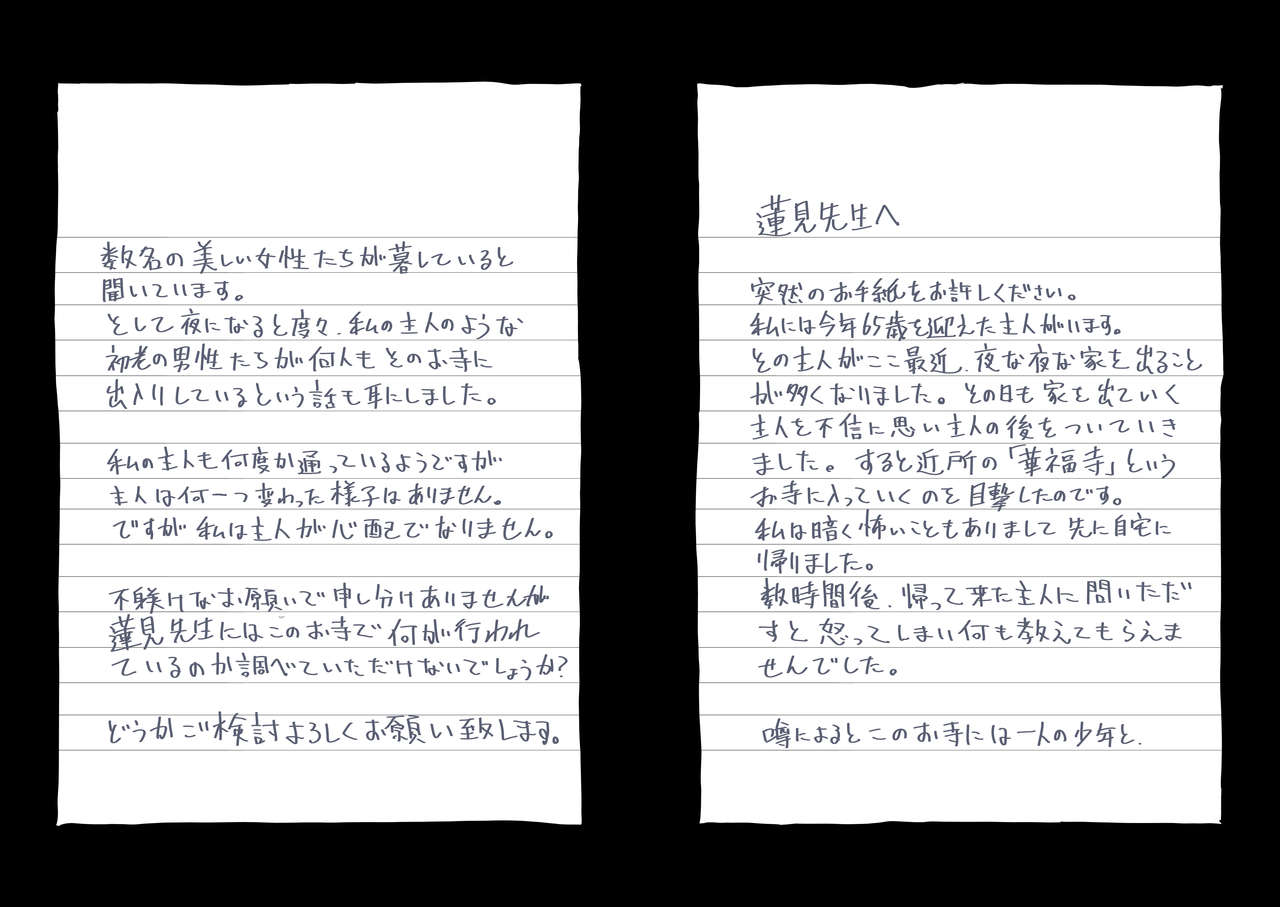 蓮見先生へ
突然のお手紙をお許しください。
私には今年65歳を迎えた主人がいます。
その主人がここ最近、夜な夜な家を出ること
が多くなりました。その日も家を出ていく
主人を不信に思い主人の後をついていき
ました。すると近所の「華福寺」という
お寺に入っていくのを目撃したのです。
私は暗く怖いこともありまして先に自宅に
帰りました。
数時間後、帰って来た主人に問いただ
すと怒ってしまい何も教えてもらえま
せんでした。
噂によるとこのお寺には一人の少年と、
数名の美しい女性たちが暮していると
聞いています。
そして夜になると度々、私の主人のような
初老の男性たちが何人もそのお寺に
出入りしているという話も耳にしました。
私の主人も何度か通っているようですが
主人は何一つ変わった様子はありません。
ですが私は主人が心配でなりません。
不躾けなお願いで申し分けありませんが
蓮見先生にはこのお寺で何が行われ
ているのか調べていただけないでしょうか?
どうかご検討よろしくお願い致します。